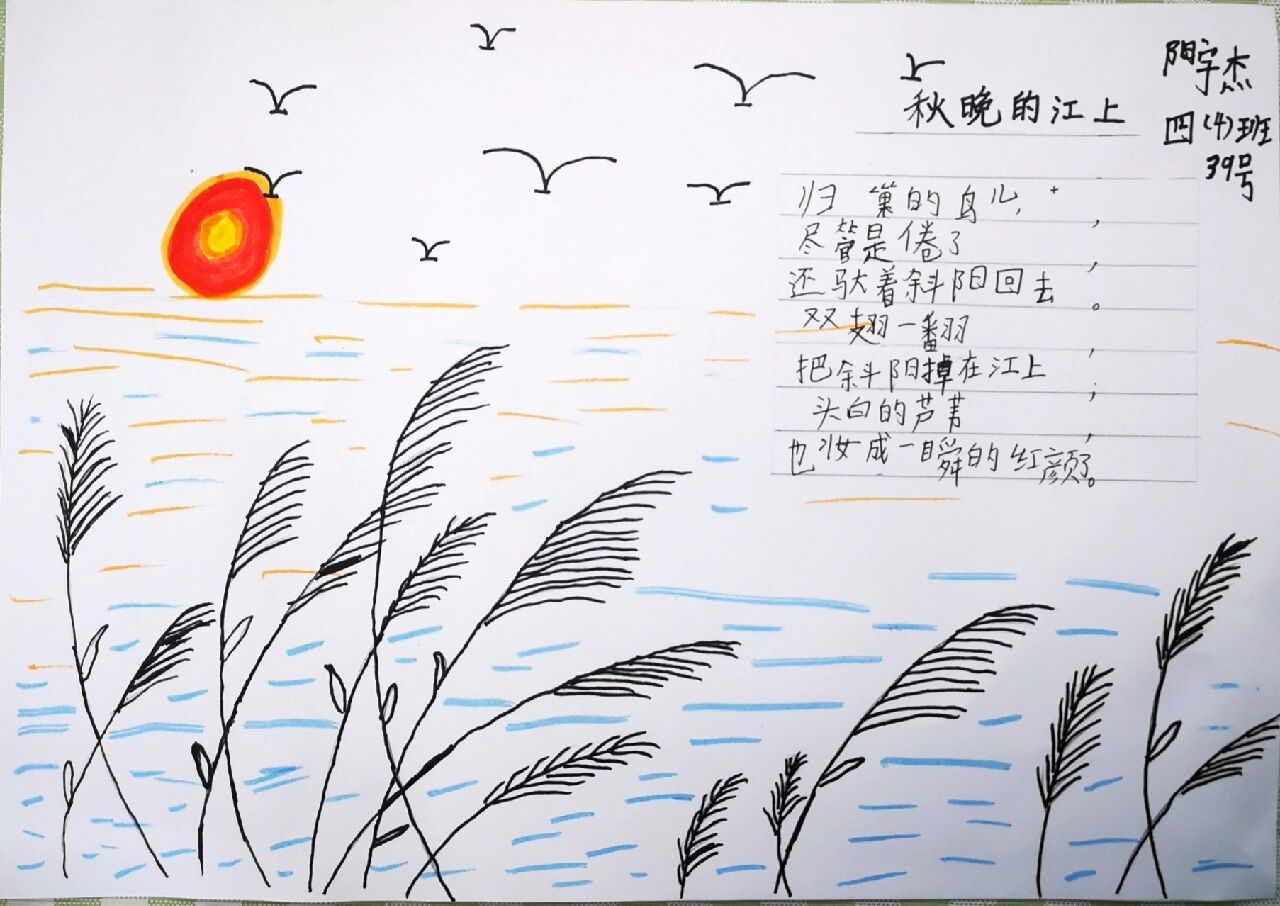 秋晚的江上
阳宇杰
四(4)班
39号
归巢的鸟儿,
尽管是倦了,
还驮着斜阳回去。
双翅一翻,
把斜阳掉在江上;
头白的芦苇,
也妆成一瞬的红颜了。